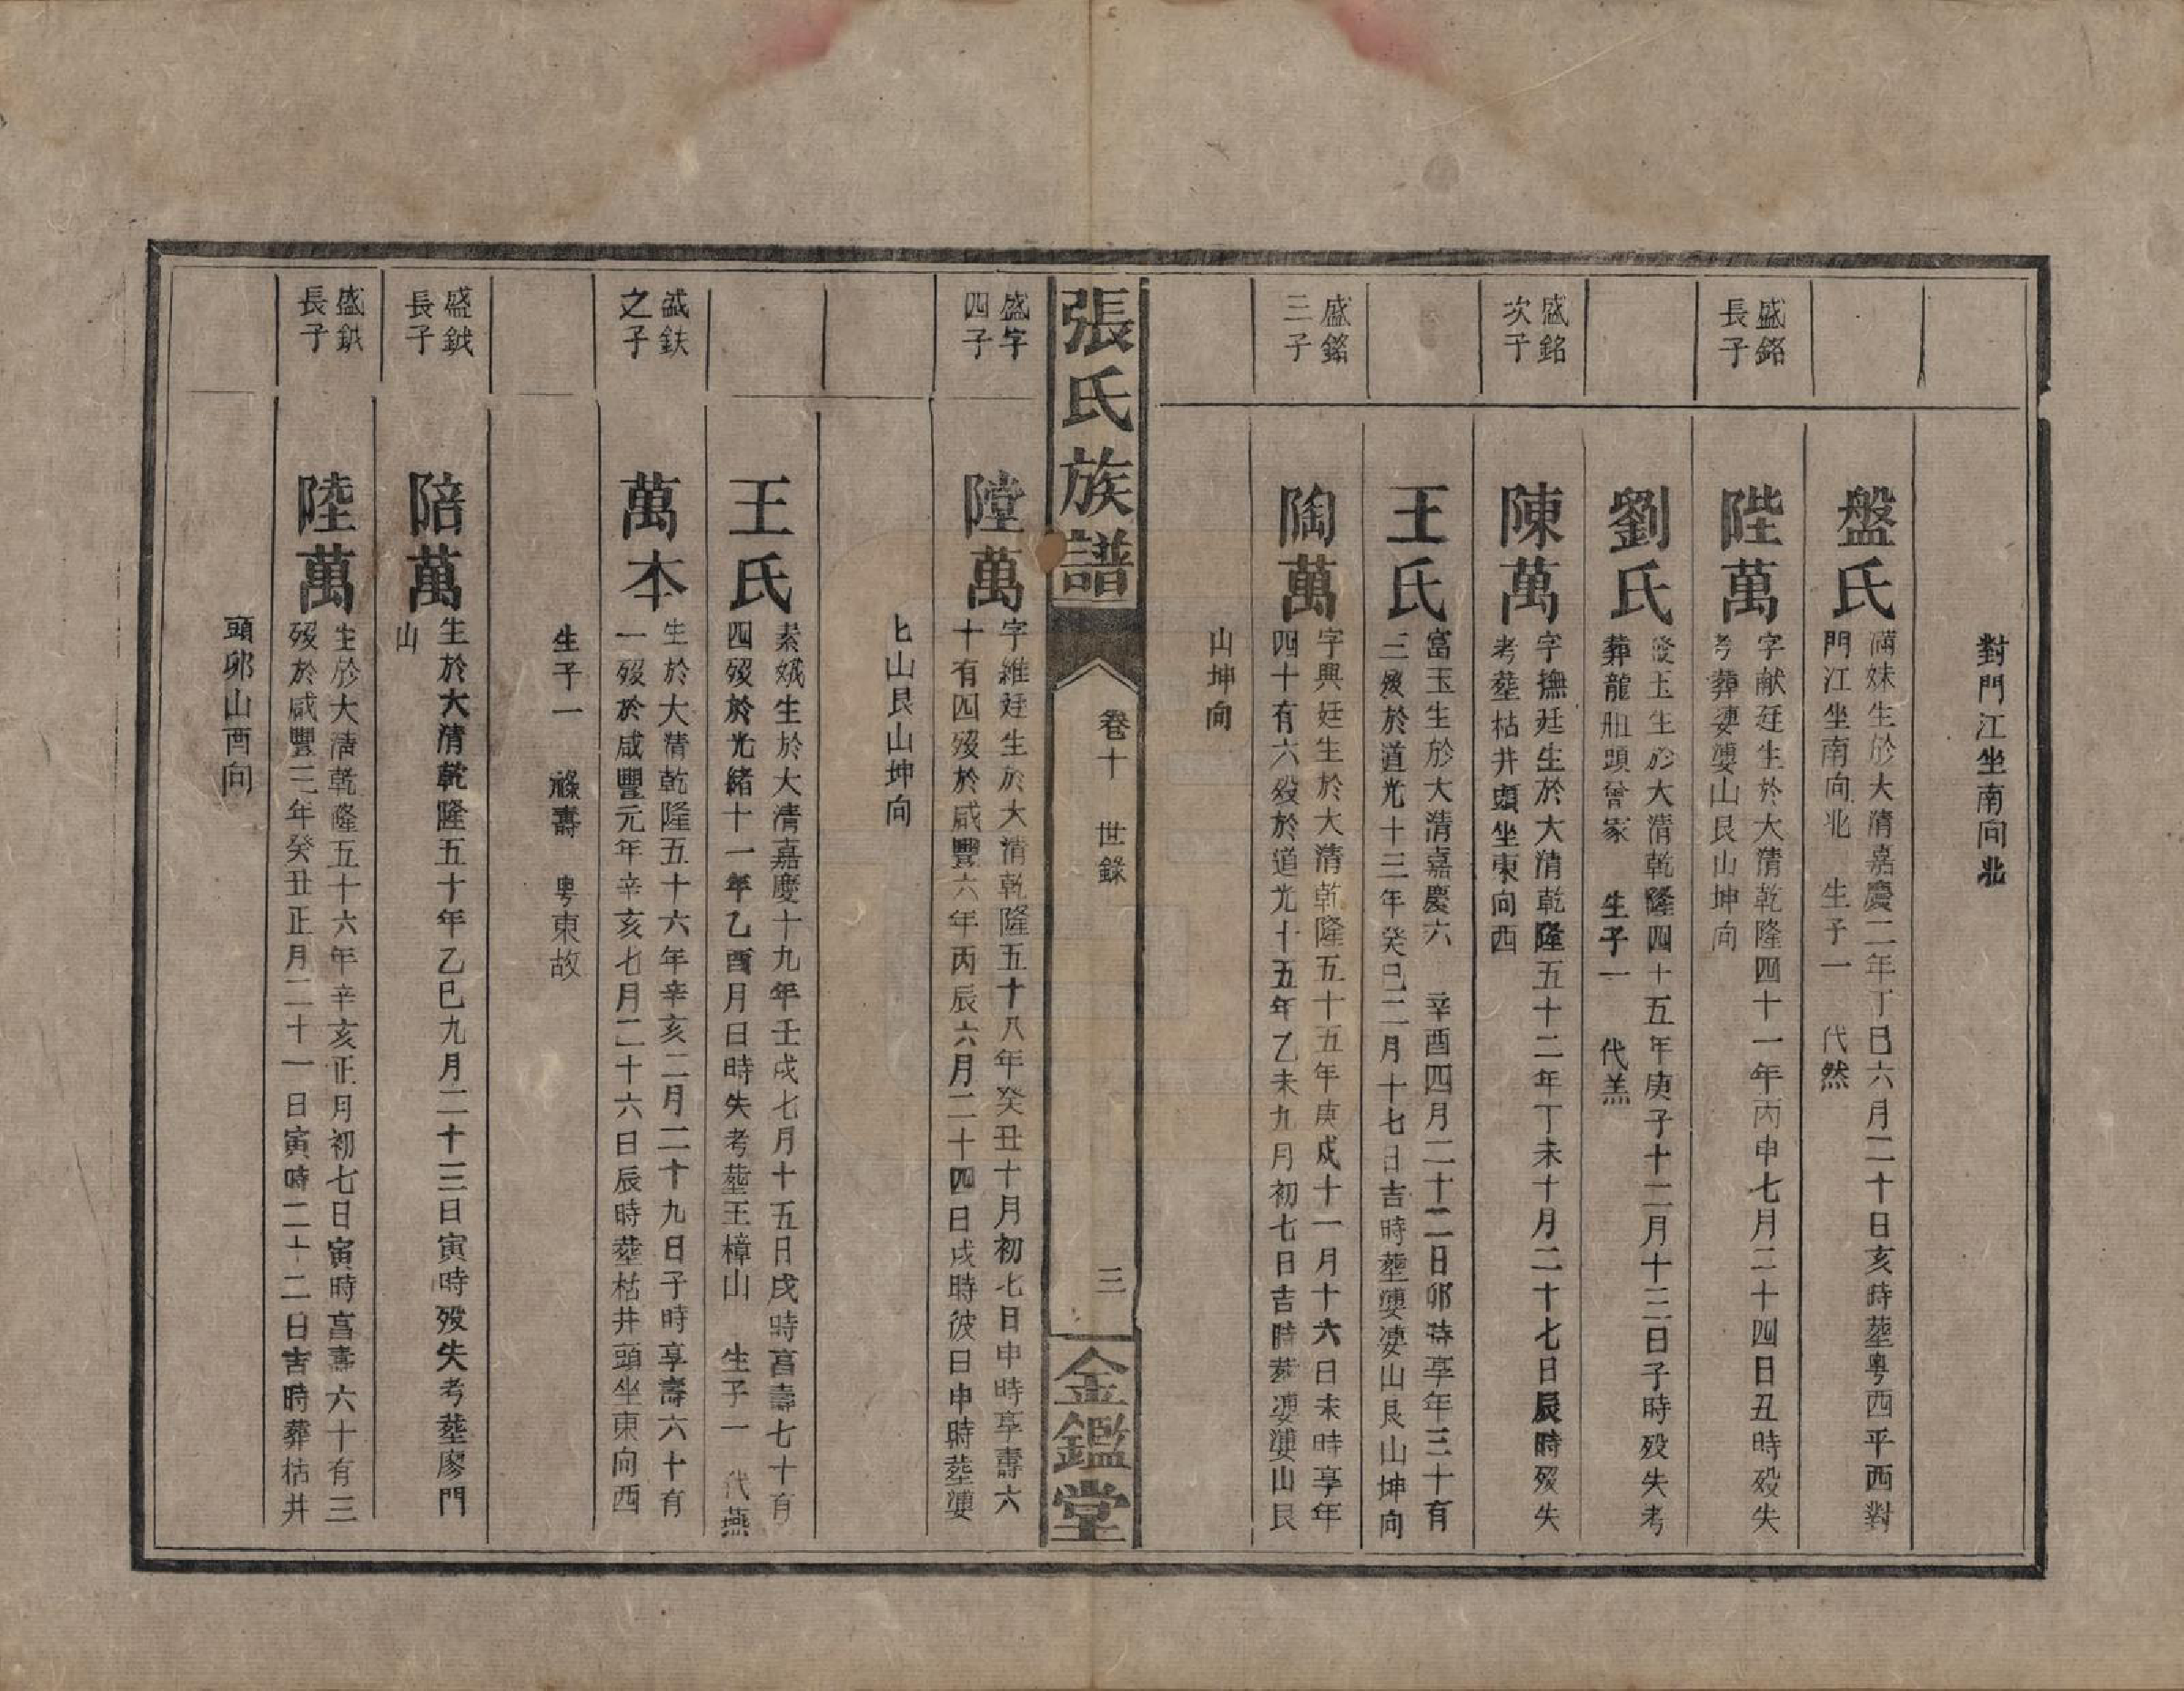 對門江坐南向北
盤氏
滿妹生於大清嘉慶二年丁巳六月二十日亥時塟粵西平西對
門江坐南向北 生子一 代然
盛銘
長子
陛萬
字献廷生於大清乾隆四十一年丙申七月二十四日丑時殁失
考葬凄塿山艮山坤向
劉氏
發玉生於大清乾隆四十五年庚子十二月十三日子時殁失考
葬龍船頭曾家 生子一 代羔
盛銘
次子
陳萬
字撫廷生於大清乾隆五十二年丁未十月二十七日辰時殁失
考塟枯井頭坐東向西
王氏
富玉生於大清嘉慶六 辛酉四月二十二日卯時享年三十有
三殁於道光十三年癸巳二月十七日吉時塟塿凄山艮山坤向
盛銘
三子
陶萬
字興廷生於大清乾隆五十五年庚戍十一月十六日未時享年
四十有六殁於道光十五年乙未九月初七日吉時葬凄塿山艮
山坤向
張氏族譜
卷十 世錄
三
金鑑堂
盛字
四子
隚萬
字維廷生於大清乾隆五十八年癸丑十月初七日申時享壽六
十有四殁於咸豐六年丙辰六月二十四日戍時彼日申時塟塿
匕山艮山坤向
王氏
素娥生於大清嘉慶十九年壬戍七月十五日戍時享壽七十有
四殁於光緒十一年乙酉月日時失考塟王樟山 生子一 代燕
誠鈇
之子
萬本
生於大清乾隆五十六年辛亥二月二十九日子時享壽六十有
一殁於咸豐元年辛亥七月二十六日辰時塟枯井頭坐東向西
生子一 祿壽 粵東故
盛鉞
長子
陪萬
生於大清乾隆五十年乙巳九月二十三日寅時殁失考塟廖門
山
盛鉷
長子
陸萬
生於大清乾隆五十六年辛亥正月初七日寅時享壽六十有三
殁於咸豐三年癸丑正月二十一日寅時二十二日吉時葬枯井
頭卯山酉向